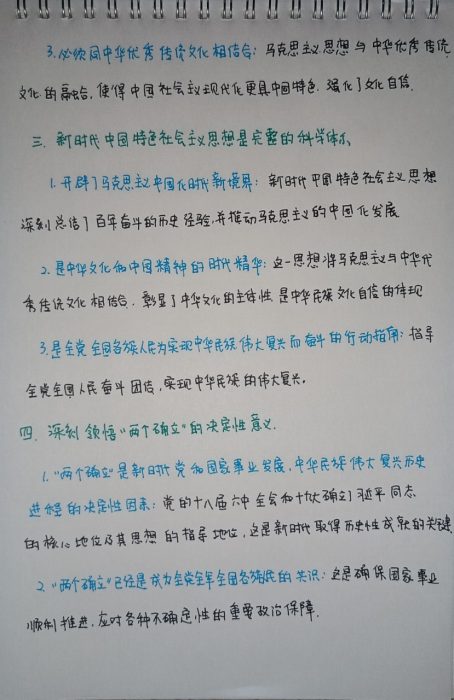 3.必须同中华优秀传统文化相结合：马克思主义思想与中华优秀传统
文化的融合，使得中国社会主义现代化更具中国特色，强化了文化自信.
三、新时代中国特色社会主义思想是完整的科学体系
1.开辟了马克思主义中国化时代新境界：新时代中国特色社会主义思想
深刻总结了百年奋斗的历史经验，并推动马克思主义的中国化发展
2.是中华文化和中国精神的时代精华：这一思想将马克思主义与中华优
秀传统文化相结合，彰显了中华文化的主体性，是中华民族文化自信的体现
3.是全党全国各族人民为实现中华民族伟大复兴而奋斗的行动指南：指导
全党全国人民奋斗团结，实现中华民族的伟大复兴。
四、深刻领悟“两个确立”的决定性意义.
1.“两个确立”是新时代党和国家事业发展，中华民族伟大复兴历史
进程的决定性因素：党的十八届六中全会和十九大确立了习近平同志
的核心地位及其思想的指导地位，这是新时代取得历史性成就的关键
2.“两个确立”已经是成为全党全军全国各族人民的共识：这是确保国家事业
顺利推进，应对各种不确定性的重要政治保障.